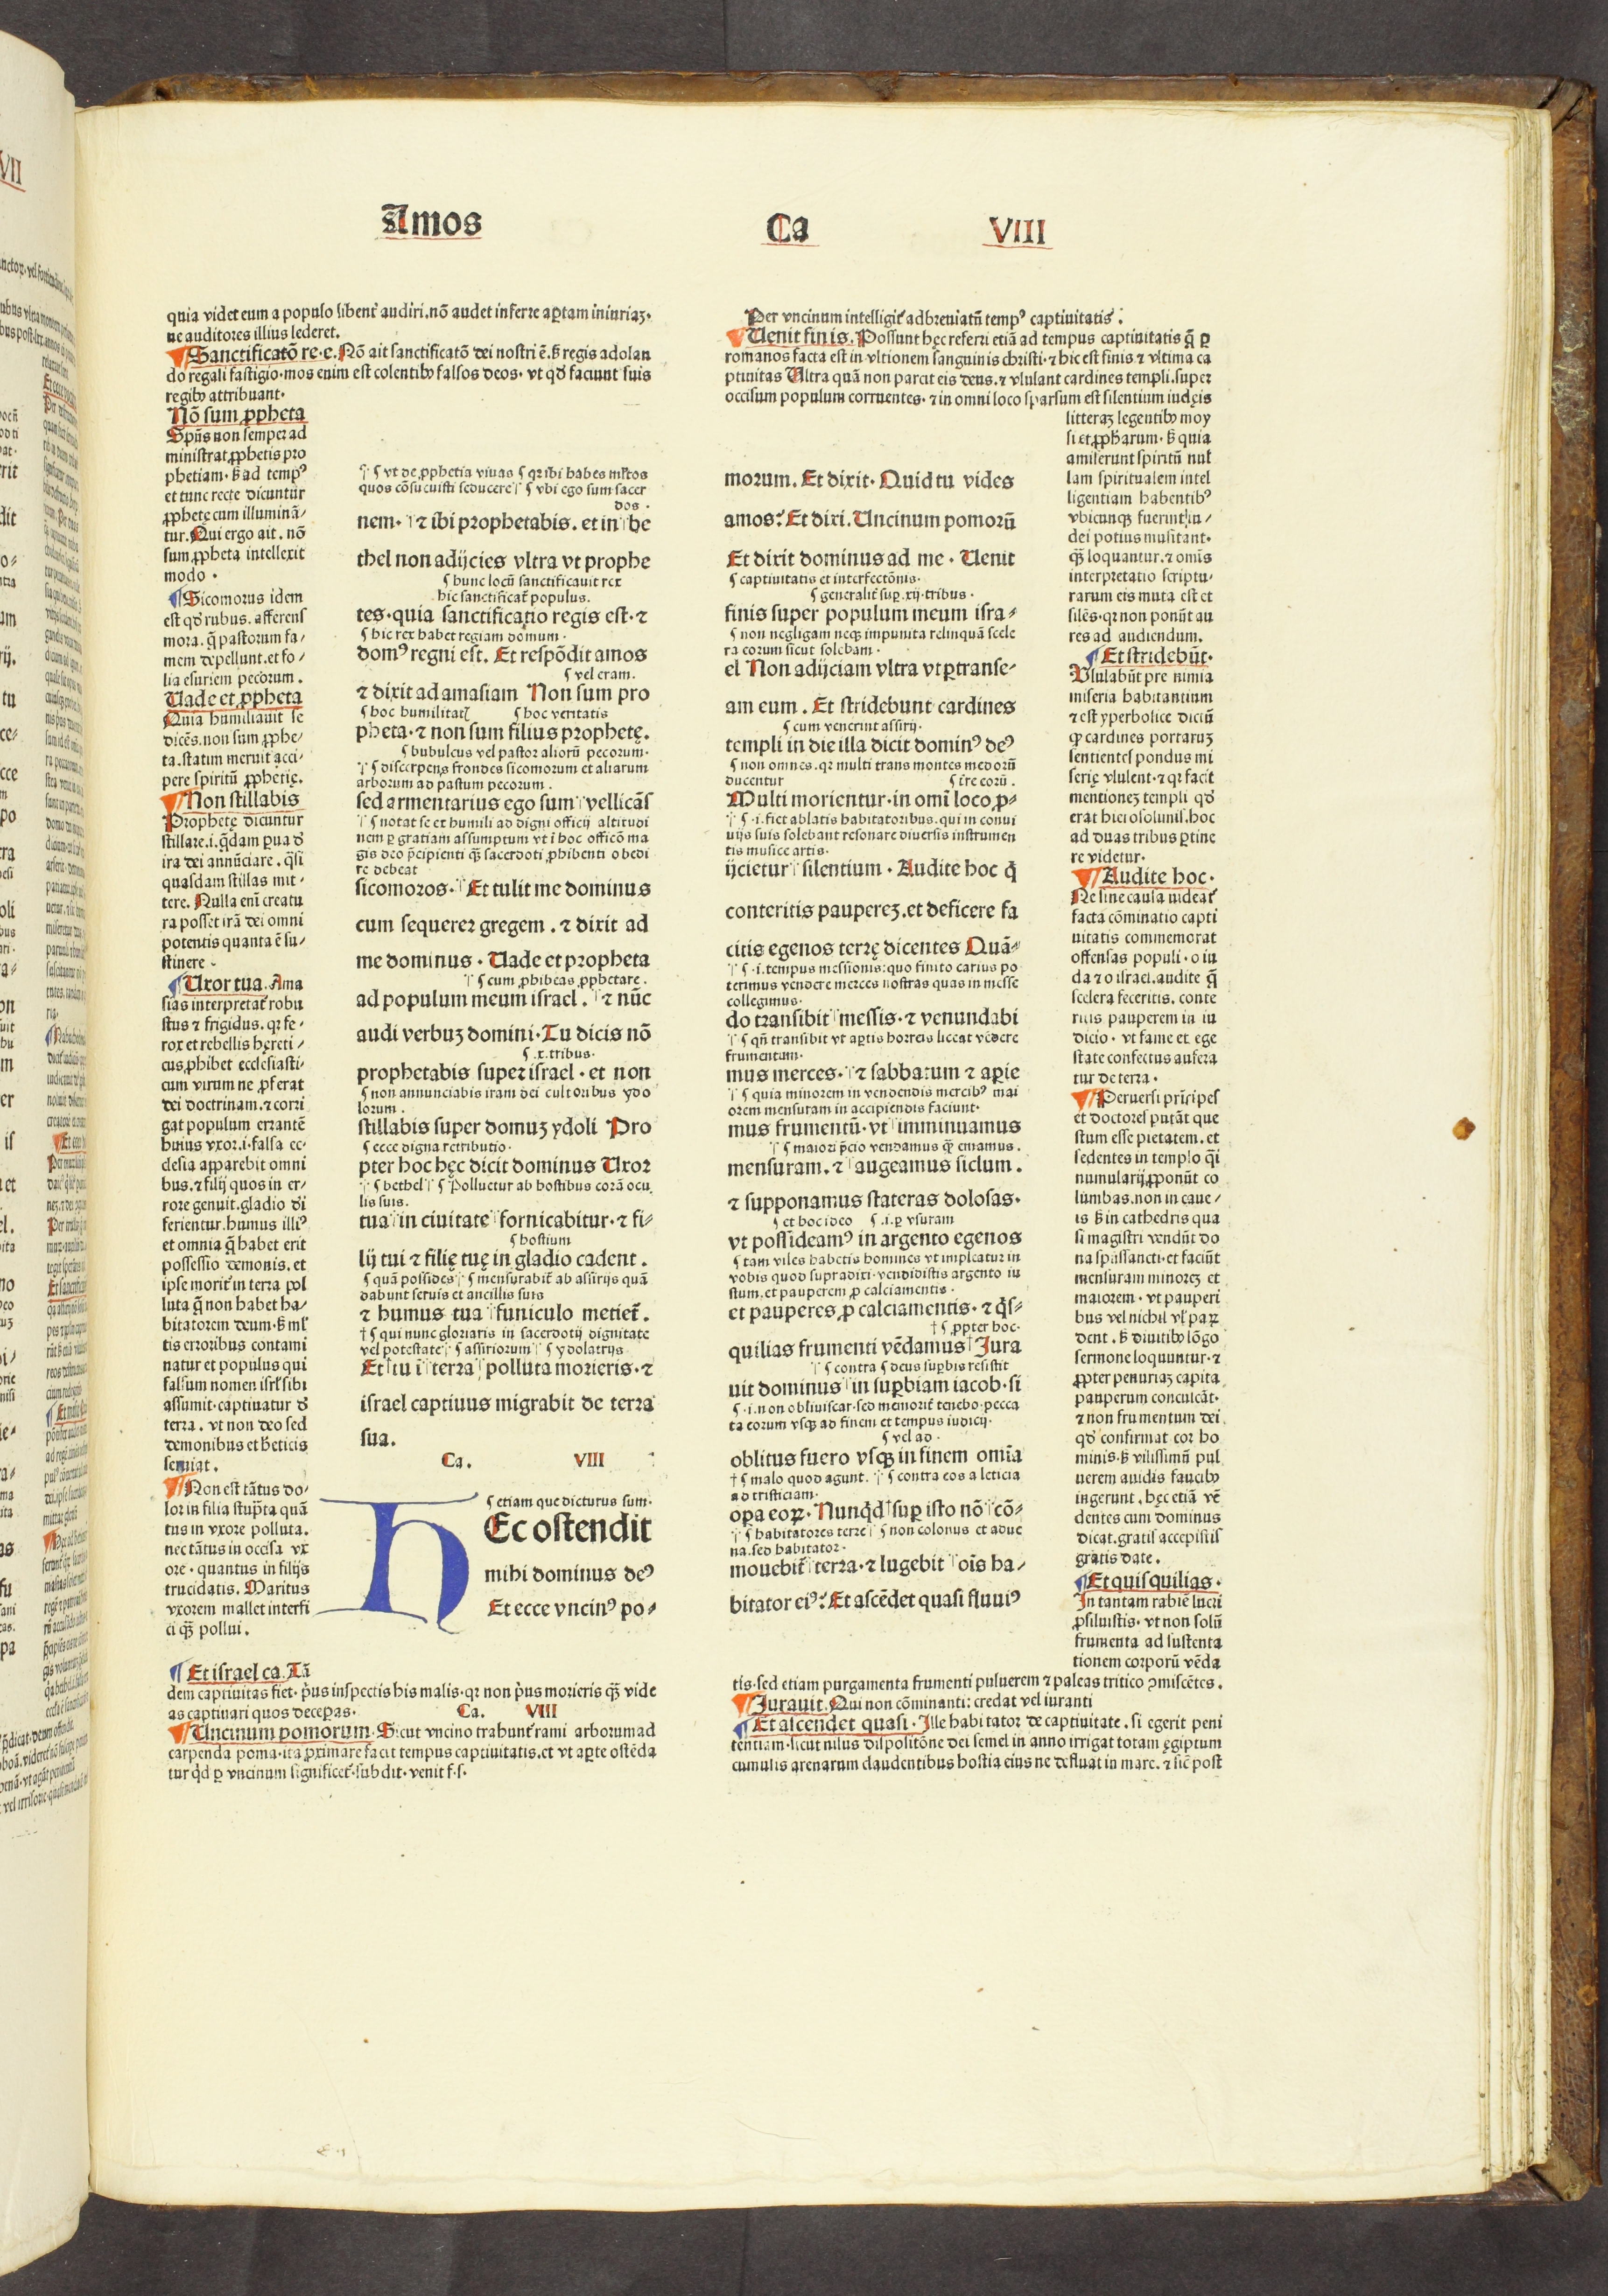 Amos Ca VIII
quia videt eum a populo libent᷑ audiri. nō audet inferre aꝑtam iniuriaꝫ.
ne auditores illius lederet.
Sanctificatō re. e. Nō ait sanctificatō dei nostri ē. ẞ regis adolan
do regali fastigio. mos enim est colentibꝰ falsos deos. vt qđ faciunt suis
regibꝰ attribuant.
Nō sum ꝓpheta
Spūs non semper ad
ministrat ꝓphetis pro
phetiam. ẞ ad tempꝰ
et tunc recte dicuntur
ꝓphetę cum illuminā⸗
tur. Qui ergo ait. nō
sum ꝓpheta intellexit
modo.
Sicomorus idem
est qđ rubus. afferens
mora. q̄ pastorum fa⸗
mem depellunt. et fo⸗
lia esuriem pecorum.
Vade et ꝓpheta
Quia humiliauit se
dicēs. non sum ꝓphe⸗
ta. statim meruit acci⸗
pere spiritū ꝓphetię.
Non stillabis
Prophetę dicuntur
stillare. i. q̄dam ꝑua đ
ira dei annūciare. q̄si
quasdam stillas mit⸗
tere. Nulla enī creatu
ra posset irā dei omni
potentis quanta ē su⸗
stinere.
Uxor tua. Ama
sias interpretat᷑ robu
stus ⁊ frigidus. qr fe⸗
rox et rebellis hęreti⸗
cus ꝓhibet ecclesiasti⸗
cum virum ne ꝓferat
dei doctrinam. ⁊ corri
gat populum errantē
huius vxor. i. falsa ec⸗
clesia apparebit omni
bus. ⁊ filij quos in er⸗
rore genuit. gladio đi
ferientur. humus illiꝰ
et omnia q̄ habet erit
possessio demonis. et
ipse morit᷑ in terra pol
luta q̄ non habet ha⸗
bitatorem deum. ẞ ml᷑
tis erroribus contami
natur et populus qui
falsum nomen isrl᷑ sibi
assumit. captiuatur đ
terra. vt non deo sed
demonibus et hēticis
seruiat.
Non est tātus do⸗
lor in filia stupͭta quā
tus in vxore polluta.
nec tātus in occisa vx
ore. quantus in filijs
trucidatis. Maritus
vxorem mallet interfi
ci qꝫ pollui.
Et israel ca. Tā
dem captiuitas fiet. p̄us inspectis his malis. qr non p̄us morieris qꝫ vide
as captiuari quos deceꝑas. Ca. VIII
Uncinum pomorum. Sicut vncino trahunt᷑ rami arborum ad
carpenda poma. ita ꝓximare facit tempus captiuitatis. et vt aꝑte ostēda
tur qđ ꝑ vncinum significet᷑. subdit. venit f. s.
ut de ꝓphetia viuas qr ibi habes ml᷑tos
quos cōsueuisti seducere vbi ego sum sacer
dos.
nem. ⁊ ibi prophetabis. et in be
thel non adijcies vltra vt prophe
hunc locū sanctificauit rex
hic sanctificat᷑ populus.
tes. quia sanctificatio regis est. ⁊
hic rex habet regiam domum.
domꝰ regni est. Et respōdit amos
vel eram.
⁊ dixit ad amasiam Non sum pro
hoc humilitatꝭ hoc veritatis
pheta. ⁊ non sum filius prophetę.
bubulcus vel pastor aliorū pecorum.
discerpens frondes sicomorum et aliarum
arborum ad pastum pecorum.
sed armentarius ego sum vellicās
notat se et humili ad digni officij altitudi
nem ꝑ gratiam assumptum vt ī hoc officō ma
gis deo p̄cipienti qꝫ sacerdoti ꝓhibenti obedi
re debeat
sicomoros. Et tulit me dominus
cum sequerer gregem. ⁊ dixit ad
me dominus. Vade et propheta
cum ꝓhibeas ꝓphetare.
ad populum meum israel. ⁊ nūc
audi verbuꝫ domini. Tu dicis nō
.x. tribus.
prophetabis super israel. et non
non annunciabis iram dei cultoribus ydo
lorum.
stillabis super domuꝫ ydoli Pro
ecce digna retributio.
pter hoc hęc dicit dominus Uxor
bethel polluetur ab hostibus corā ocu
lis suis.
tua in ciuitate fornicabitur. ⁊ fi⸗
hostium
lij tui ⁊ filię tuę in gladio cadent.
quā possides mensurabit᷑ ab assirijs quā
dabunt seruis et ancillis suis
⁊ humus tua funiculo metiet᷑.
qui nunc gloriaris in sacerdotij dignitate
vel potestate assiriorum ydolatrijs
Et tu ī terra polluta morieris. ⁊
israel captiuus migrabit de terra
sua.
Ca. VIII
etiam que dicturus sum.
HEc ostendit
mihi dominus deꝰ
Et ecce vncinꝰ po⸗
Per vncinum intelligit᷑ adbreuiatū tempꝰ captiuitatis.
Uenit finis. Possunt hęc referri etiā ad tempus captiuitatis q̄ ꝑ
romanos facta est in vltionem sanguinis christi. ⁊ hic est finis ⁊ vltima ca
ptiuitas Ultra quā non parcit eis deus. ⁊ vlulant cardines templi. super
occisum populum corruentes. ⁊ in omni loco sparsum est silentium iudęis
litteraꝫ legentibꝰ moy
si et ꝓph̄arum. ẞ quia
amiserunt spiritū nul
lam spiritualem intel
ligentiam habentibꝰ
vbicunqꝫ fuerint iu⸗
dei potius musitant.
qꝫ loquantur. ⁊ omīs
interpretatio scriptu⸗
rarum eis muta est et
silēs. qr non ponūt au
res ad audiendum.
Et stridebūt.
Vlulabūt pre nimia
miseria habitantium
⁊ est yperbolice dictū
ꝙ cardines portaruꝫ
sentientes pondus mi
serię vlulent. ⁊ qr facit
mentioneꝫ templi qđ
erat hierosolimis. hoc
ad duas tribus ꝑtine
re videtur.
Audite hoc.
Ne sine causa uideat᷑
facta cōminatio capti
uitatis commemorat
offensas populi. o iu
da ⁊ o israel. audite q̄
scelera feceritis. conte
ritis pauperem in iu
dicio. vt fame et ege
state confectus aufera
tur de terra.
Peruersi prīcipes
et doctores putāt que
stum esse pietatem. et
sedentes in templo q̄i
numularij ꝓponūt co
lumbas. non in caue⸗
is ẞ in cathedris qua
si magistri vendūt do
na spūssancti. et faciūt
mensuram minoreꝫ et
maiorem. vt pauperi
bus vel nichil vl᷑ parꝫ
dent. ẞ diuitibꝰ lōgo
sermone loquuntur. ⁊
ꝓpter penuriaꝫ capita
pauperum conculcāt.
⁊ non frumentum dei
qđ confirmat cor ho
minis. ẞ vilissimū pul
uerem auidis faucibꝰ
ingerunt. hęc etiā vē
dentes cum dominus
dicat. gratis accepistis
gratis date.
Et quisquilias.
In tantam rabiē lucri
ꝓsiluistis. vt non solū
frumenta ad sustenta
tionem corporū vēda
tis. sed etiam purgamenta frumenti puluerem ⁊ paleas tritico ꝯmiscētes.
Jurauit. Qui non cōminanti: credat vel iuranti
Et ascendet quasi. Ille habitator de captiuitate. si egerit peni
tentiam. sicut nilus dispositōne dei semel in anno irrigat totam ęgiptum
cumulis arenarum claudentibus hostia eius ne defluat in mare. ⁊ sic̄ post
morum. Et dixit. Quid tu vides
amos? Et dixi. Uncinum pomorū
Et dixit dominus ad me. Uenit
captiuitatis et interfectōnis.
generalit᷑ suꝑ .xij. tribus.
finis super populum meum isra⸗
non negligam neqꝫ impunita relinquā scele
ra eorum sicut solebam.
el Non adijciam vltra vt ꝑtranse⸗
am eum. Et stridebunt cardines
cum venerint assirij.
templi in die illa dicit dominꝰ deꝰ
non omnes. qr multi trans montes medorū
ducentur ire eorū.
Multi morientur. in omī loco ꝓ⸗
.i. fiet ablatis habitatoribus. qui in conui
uijs suis solebant resonare diuersis instrumen
tis musice artis.
ijcietur silentium. Audite hoc q̄
conteritis paupereꝫ. et deficere fa
citis egenos terrę dicentes Quā⸗
.i. tempus messionis: quo finito carius po
terimus vendere merces nostras quas in messe
collegimus.
do transibit messis. ⁊ venundabi
qn̄ transibit vt aꝑtis horreis liceat vēdere
frumentum.
mus merces. ⁊ sabbatum ⁊ aꝑie
quia minorem in vendendis mercibꝰ mai
orem mensuram in accipiendis faciunt.
mus frumentū. vt imminuamus
maiori p̄cio vendamus qꝫ emamus.
mensuram. ⁊ augeamus siclum.
⁊ supponamus stateras dolosas.
et hoc ideo .i. ꝑ vsuram
vt possideamꝰ in argento egenos
tam viles habetis homines vt impleatur in
vobis quod supradixi. vendidistis argento iu
stum. et pauperem ꝓ calciamentis.
et pauperes ꝓ calciamentis. ⁊ q̄s⸗
ꝓpter hoc.
quilias frumenti vēdamus Jura
contra deus suꝑbis resistit
uit dominus in suꝑbiam iacob. si
.i. non obliuiscar. sed memorit᷑ tenebo. pecca
ta eorum vsqꝫ ad finem et tempus iudicij.
vel ad.
oblitus fuero vsqꝫ in finem omīa
malo quod agunt. contra eos a leticia
ad tristiciam.
oꝑa eoꝝ. Nunqđ suꝑ isto nō cō⸗
habitatores terre non colonus et adue
na. sed habitator.
mouebit᷑ terra. ⁊ lugebit oīs ha⸗
bitator eiꝰ? Et ascēdet quasi fluuiꝰ